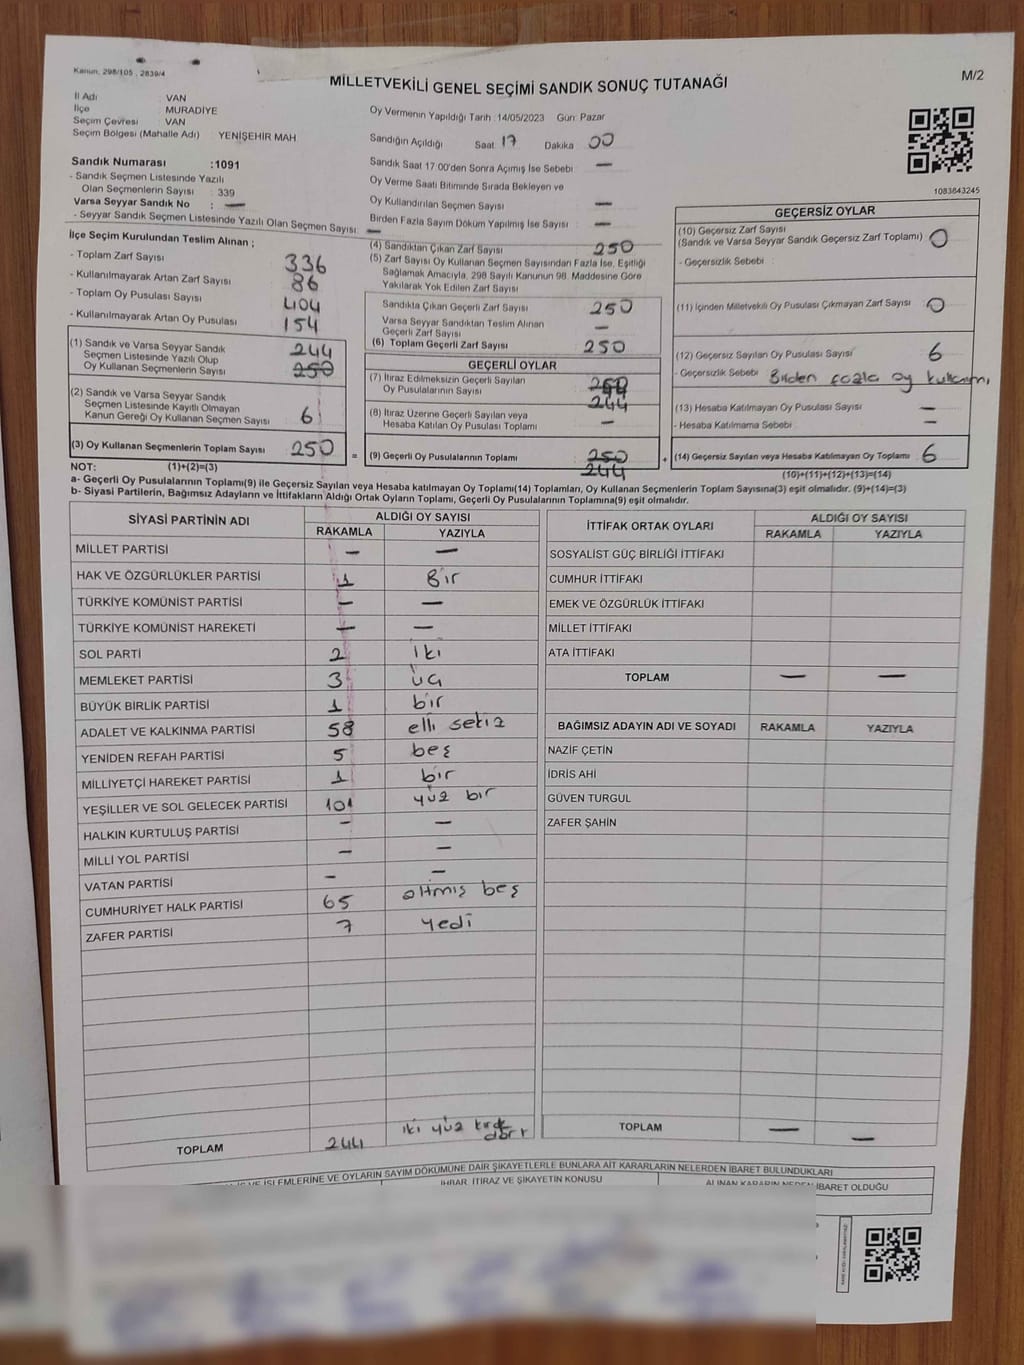 Kanun, 298/105 , 2839/4
MİLLETVEKİLİ GENEL SEÇİMİ SANDIK SONUÇ TUTANAĞI
M/2
İl Adı : VAN
İlçe : MURADİYE
Seçim Çevresi : VAN
Seçim Bölgesi (Mahalle Adı) : YENİŞEHİR MAH
Oy Vermenin Yapıldığı Tarih :14/05/2023 Gün: Pazar
Sandığın Açıldığı Saat 17 Dakika 00
Sandık Saat 17:00'den Sonra Açımış İse Sebebi : —
Oy Verme Saati Bitiminde Sırada Bekleyen ve
Oy Kullandırılan Seçmen Sayısı —
Birden Fazla Sayım Döküm Yapılmış İse Sayısı : —
1083643245
Sandık Numarası : 1091
- Sandık Seçmen Listesinde Yazılı
Olan Seçmenlerin Sayısı : 339
Varsa Seyyar Sandık No : —
- Seyyar Sandık Seçmen Listesinde Yazılı Olan Seçmen Sayısı: —
İlçe Seçim Kurulundan Teslim Alınan ;
- Toplam Zarf Sayısı 336
- Kullanılmayarak Artan Zarf Sayısı 86
- Toplam Oy Pusulası Sayısı 404
- Kullanılmayarak Artan Oy Pusulası 154
(1) Sandık ve Varsa Seyyar Sandık
Seçmen Listesinde Yazılı Olup
Oy Kullanan Seçmenlerin Sayısı 244 250
(2) Sandık ve Varsa Seyyar Sandık
Seçmen Listesinde Kayıtlı Olmayan
Kanun Gereği Oy Kullanan Seçmen Sayısı 6
(3) Oy Kullanan Seçmenlerin Toplam Sayısı 250 =
(4) Sandıktan Çıkan Zarf Sayısı 250
(5) Zarf Sayısı Oy Kullanan Seçmen Sayısından Fazla İse, Eşitliği
Sağlamak Amacıyla, 298 Sayılı Kanunun 98. Maddesine Göre
Yakılarak Yok Edilen Zarf Sayısı
Sandıkta Çıkan Geçerli Zarf Sayısı 250
Varsa Seyyar Sandıktan Teslim Alınan
Geçerli Zarf Sayısı —
(6) Toplam Geçerli Zarf Sayısı 250
GEÇERLİ OYLAR
(7) İtiraz Edilmeksizin Geçerli Sayılan
Oy Pusulalarının Sayısı 244
(8) İtiraz Üzerine Geçerli Sayılan veya
Hesaba Katılan Oy Pusulası Toplamı —
(9) Geçerli Oy Pusulalarının Toplamı 250 244 +
GEÇERSİZ OYLAR
(10) Geçersiz Zarf Sayısı
(Sandık ve Varsa Seyyar Sandık Geçersiz Zarf Toplamı) 0
- Geçersizlik Sebebi :
(11) İçinden Milletvekili Oy Pusulası Çıkmayan Zarf Sayısı 0
(12) Geçersiz Sayılan Oy Pusulası Sayısı 6
- Geçersizlik Sebebi Birden fazla oy kullanımı
(13) Hesaba Katılmayan Oy Pusulası Sayısı —
- Hesaba Katılmama Sebebi : —
(14) Geçersiz Sayılan veya Hesaba Katılmayan Oy Toplamı 6
NOT: (1)+(2)=(3)
(10)+(11)+(12)+(13)=(14)
a- Geçerli Oy Pusulalarının Toplamı(9) ile Geçersiz Sayılan veya Hesaba katılmayan Oy Toplamı(14) Toplamları, Oy Kullanan Seçmenlerin Toplam Sayısına(3) eşit olmalıdır. (9)+(14)=(3)
b- Siyasi Partilerin, Bağımsız Adayların ve İttifakların Aldığı Ortak Oyların Toplamı, Geçerli Oy Pusulalarının Toplamına(9) eşit olmalıdır.
SİYASİ PARTİNİN ADI ALDIĞI OY SAYISI
RAKAMLA YAZIYLA
MİLLET PARTİSİ — —
HAK VE ÖZGÜRLÜKLER PARTİSİ 1 Bir
TÜRKİYE KOMÜNİST PARTİSİ — —
TÜRKİYE KOMÜNİST HAREKETİ — —
SOL PARTİ 2 iki
MEMLEKET PARTİSİ 3 üç
BÜYÜK BİRLİK PARTİSİ 1 bir
ADALET VE KALKINMA PARTİSİ 58 elli sekiz
YENİDEN REFAH PARTİSİ 5 beş
MİLLİYETÇİ HAREKET PARTİSİ 1 bir
YEŞİLLER VE SOL GELECEK PARTİSİ 101 yüz bir
HALKIN KURTULUŞ PARTİSİ — —
MİLLİ YOL PARTİSİ — —
VATAN PARTİSİ — —
CUMHURİYET HALK PARTİSİ 65 altmış beş
ZAFER PARTİSİ 7 yedi
TOPLAM 244 iki yüz kırk dört
İTTİFAK ORTAK OYLARI ALDIĞI OY SAYISI
RAKAMLA YAZIYLA
SOSYALİST GÜÇ BİRLİĞİ İTTİFAKI
CUMHUR İTTİFAKI
EMEK VE ÖZGÜRLÜK İTTİFAKI
MİLLET İTTİFAKI
ATA İTTİFAKI
TOPLAM — —
BAĞIMSIZ ADAYIN ADI VE SOYADI RAKAMLA YAZIYLA
NAZİF ÇETİN
İDRİS AHİ
GÜVEN TURGUL
ZAFER ŞAHİN
TOPLAM — —
İŞLEMLERİNE VE OYLARIN SAYIM DÖKÜMÜNE DAİR ŞİKAYETLERLE BUNLARA AİT KARARLARIN NELERDEN İBARET BULUNDUKLARI
İHBAR, İTİRAZ VE ŞİKAYETİN KONUSU
ALINAN KARARIN NEDEN İBARET OLDUĞU